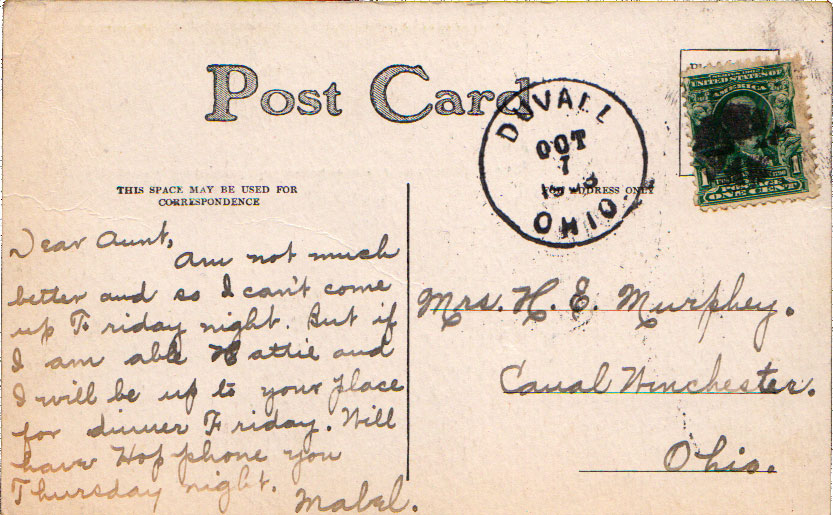 Post Card
DUVALL
OCT
7
OHIO
UNITED STATES OF
AMERICA
POSTAGE
ONE CENT
THIS SPACE MAY BE USED FOR
CORRESPONDENCE
ADDRESS ONLY
Dear Aunt,
Am not much
better and so I can't come
up Friday night. But if
I am able Hattie and
I will be up to your place
for dinner Friday. Will
have Hop phone you
Thursday night.
Mabel.
Mrs. H. E. Murphey.
Canal Winchester.
Ohio.